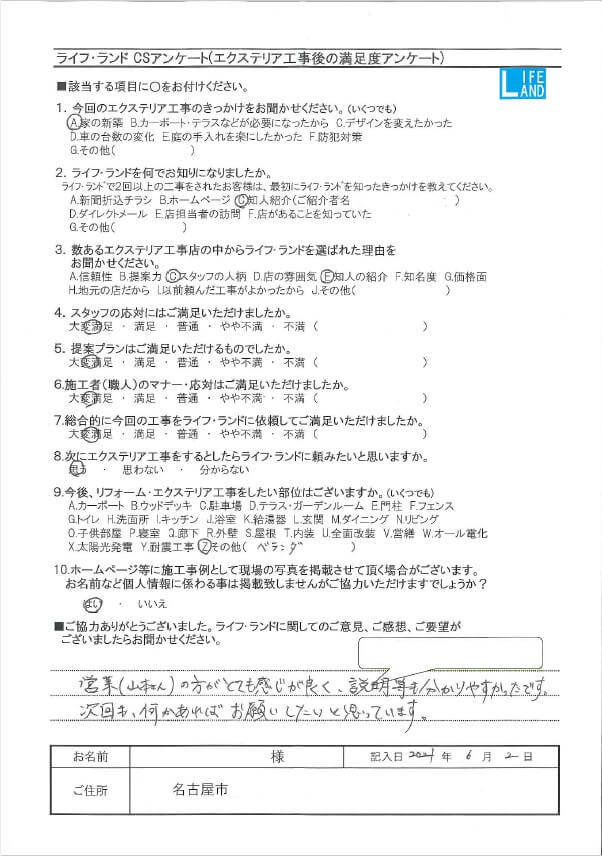 ライフ・ランド CSアンケート(エクステリア工事後の満足度アンケート)
LIFE LAND
■該当する項目に○をお付けください。
1. 今回のエクステリア工事のきっかけをお聞かせください。(いくつでも)
A.家の新築 B.カーポート・テラスなどが必要になったから C.デザインを変えたかった
D.車の台数の変化 E.庭の手入れを楽にしたかった F.防犯対策
G.その他( )
2. ライフ・ランドを何でお知りになりましたか。
ライフ・ランドで2回以上の工事をされたお客様は、最初にライフ・ランドを知ったきっかけを教えてください。
A.新聞折込チラシ B.ホームページ C.知人紹介(ご紹介者名 )
D.ダイレクトメール E.店担当者の訪問 F.店があることを知っていた
G.その他( )
3. 数あるエクステリア工事店の中からライフ・ランドを選ばれた理由を
お聞かせください。
A.信頼性 B.提案力 C.スタッフの人柄 D.店の雰囲気 E.知人の紹介 F.知名度 G.価格面
H.地元の店だから I.以前頼んだ工事がよかったから J.その他( )
4. スタッフの応対にはご満足いただけましたか。
大変満足 ・ 満足 ・ 普通 ・ やや不満 ・ 不満 ( )
5. 提案プランはご満足いただけるものでしたか。
大変満足 ・ 満足 ・ 普通 ・ やや不満 ・ 不満 ( )
6.施工者(職人)のマナー・応対はご満足いただけましたか。
大変満足 ・ 満足 ・ 普通 ・ やや不満 ・ 不満 ( )
7.総合的に今回の工事をライフ・ランドに依頼してご満足いただけましたか。
大変満足 ・ 満足 ・ 普通 ・ やや不満 ・ 不満 ( )
8.次にエクステリア工事をするとしたらライフ・ランドに頼みたいと思いますか。
思う ・ 思わない ・ 分からない
9.今後、リフォーム・エクステリア工事をしたい部位はございますか。(いくつでも)
A.カーポート B.ウッドデッキ C.駐車場 D.テラス・ガーデンルーム E.門柱 F.フェンス
G.トイレ H.洗面所 I.キッチン J.浴室 K.給湯器 L.玄関 M.ダイニング N.リビング
O.子供部屋 P.寝室 Q.廊下 R.外壁 S.屋根 T.内装 U.全面改装 V.営繕 W.オール電化
X.太陽光発電 Y.耐震工事 Z.その他( ベランダ )
10.ホームページ等に施工事例として現場の写真を掲載させて頂く場合がございます。
お名前など個人情報に係わる事は掲載致しませんがご協力いただけますでしょうか?
はい ・ いいえ
■ご協力ありがとうございました。ライフ・ランドに関してのご意見、ご感想、ご要望が
ございましたらお聞かせください。
営業(山本さん)の方がとても感じが良く、説明等も分かりやすかったです。
次回も、何かあればお願いしたいと思っています。
お名前 様 記入日 2021 年 6 月 2 日
ご住所 名古屋市